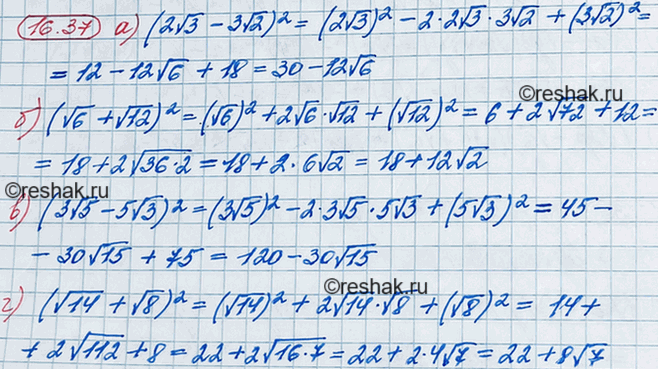 16.37 а) (2√3 − 3√2)² = (2√3)² − 2·2√3·3√2 + (3√2)² =
= 12 − 12√6 + 18 = 30 − 12√6
б) (√6 + √12)² = (√6)² + 2√6·√12 + (√12)² = 6 + 2√72 + 12 =
= 18 + 2√36·2 = 18 + 2·6√2 = 18 + 12√2
©reshak.ru
©reshak.ru
в) (3√5 − 5√3)² = (3√5)² − 2·3√5·5√3 + (5√3)² = 45 −
− 30√15 + 75 = 120 − 30√15
©reshak.ru
г) (√14 + √8)² = (√14)² + 2√14·√8 + (√8)² = 14 +
+ 2√112 + 8 = 22 + 2√16·7 = 22 + 2·4√7 = 22 + 8√7